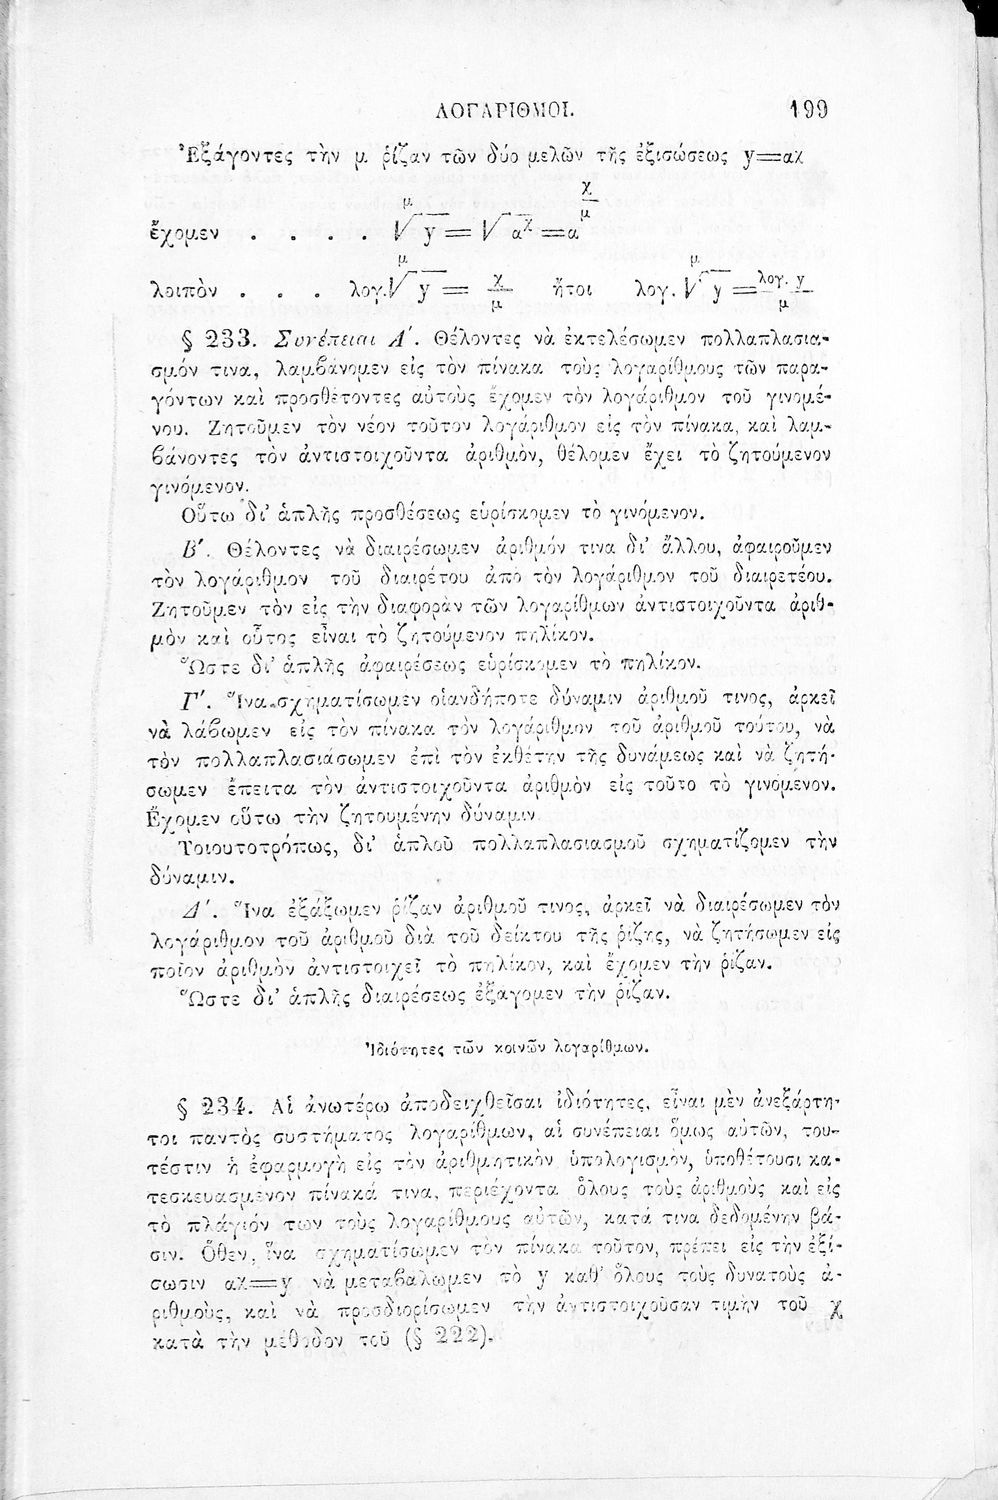 ΛΟΓΑΡΙΘΜΟΙ. 199
Ἐξάγοντες τὴν μ ῥίζαν τῶν δύο μελῶν τῆς ἐξισώσεως y=αχ
ἔχομεν . . . . μ√y = √αχ = α χ/μ
λοιπὸν . . . λογ. μ√y = χ/μ ἤτοι λογ. μ√y = λογ. y/μ
§ 233. Συνέπειαι Α΄. Θέλοντες νὰ ἐκτελέσωμεν πολλαπλασια-
σμόν τινα, λαμβάνομεν εἰς τὸν πίνακα τοὺς λογαρίθμους τῶν παρα-
γόντων καὶ προσθέτοντες αὐτοὺς ἔχομεν τὸν λογάριθμον τοῦ γινομέ-
νου. Ζητοῦμεν τὸν νέον τοῦτον λογάριθμον εἰς τὸν πίνακα, καὶ λαμ-
βάνοντες τὸν ἀντιστοιχοῦντα ἀριθμὸν, θέλομεν ἔχει τὸ ζητούμενον
γινόμενον.
Οὕτω δι’ ἁπλῆς προσθέσεως εὑρίσκομεν τὸ γινόμενον.
Β΄. Θέλοντες νὰ διαιρέσωμεν ἀριθμόν τινα δι’ ἄλλου, ἀφαιροῦμεν
τὸν λογάριθμον τοῦ διαιρέτου ἀπὸ τὸν λογάριθμον τοῦ διαιρετέου.
Ζητοῦμεν τὸν εἰς τὴν διαφορὰν τῶν λογαρίθμων ἀντιστοιχοῦντα ἀριθ-
μὸν καὶ οὗτος εἶναι τὸ ζητούμενον πηλίκον.
Ὥστε δι’ ἁπλῆς ἀφαιρέσεως εὑρίσκομεν τὸ πηλίκον.
Γ΄. Ἵνα σχηματίσωμεν οἱανδήποτε δύναμιν ἀριθμοῦ τινος, ἀρκεῖ
νὰ λάβωμεν εἰς τὸν πίνακα τὸν λογάριθμον τοῦ ἀριθμοῦ τούτου, νὰ
τὸν πολλαπλασιάσωμεν ἐπὶ τὸν ἐκθέτην τῆς δυνάμεως καὶ νὰ ζητή-
σωμεν ἔπειτα τὸν ἀντιστοιχοῦντα ἀριθμὸν εἰς τοῦτο τὸ γινόμενον.
Ἔχομεν οὕτω τὴν ζητουμένην δύναμιν
Τοιουτοτρόπως, δι’ ἁπλοῦ πολλαπλασιασμοῦ σχηματίζομεν τὴν
δύναμιν.
Δ΄. Ἵνα ἐξάξωμεν ῥίζαν ἀριθμοῦ τινος, ἀρκεῖ νὰ διαιρέσωμεν τὸν
λογάριθμον τοῦ ἀριθμοῦ διὰ τοῦ δείκτου τῆς ῥίζης, νὰ ζητήσωμεν εἰς
ποῖον ἀριθμὸν ἀντιστοιχεῖ τὸ πηλίκον, καὶ ἔχομεν τὴν ῥίζαν.
Ὥστε δι’ ἁπλῆς διαιρέσεως ἐξάγομεν τὴν ῥίζαν.
Ἰδιότητες τῶν κοινῶν λογαρίθμων.
§ 234. Αἱ ἀνωτέρω ἀποδειχθεῖσαι ἰδιότητες, εἶναι μὲν ἀνεξάρτη-
τοι παντὸς συστήματος λογαρίθμων, αἱ συνέπειαι ὅμως αὐτῶν, του-
τέστιν ἡ ἐφαρμογὴ εἰς τὸν ἀριθμητικὸν ὑπολογισμὸν, ὑποθέτουσι κα-
τεσκευασμένον πίνακά τινα, περιέχοντα ὅλους τοὺς ἀριθμοὺς καὶ εἰς
τὸ πλάγιόν των τοὺς λογαρίθμους αὐτῶν, κατά τινα δεδομένην βά-
σιν. Ὅθεν, ἵνα σχηματίσωμεν τὸν πίνακα τοῦτον, πρέπει εἰς τὴν ἐξί-
σωσιν αχ=y νὰ μεταβάλωμεν τὸ y καθ’ ὅλους τοὺς δυνατοὺς ἀ-
ριθμοὺς, καὶ νὰ προσδιορίσωμεν τὴν ἀντιστοιχοῦσαν τιμὴν τοῦ χ
κατὰ τὴν μέθοδον τοῦ (§ 222).